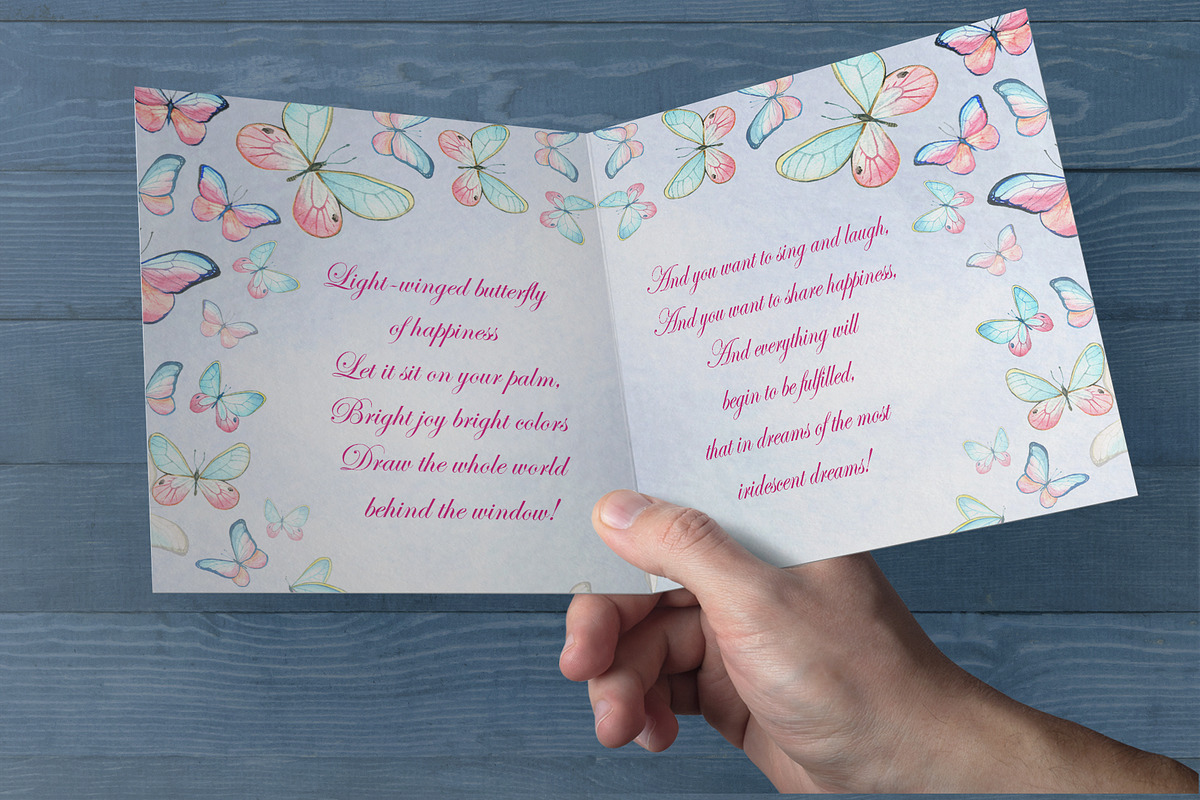 Light-winged butterfly
of happiness
Let it sit on your palm,
Bright joy bright colors
Draw the whole world
behind the window!
And you want to sing and laugh,
And you want to share happiness,
And everything will
begin to be fulfilled,
that in dreams of the most
iridescent dreams!